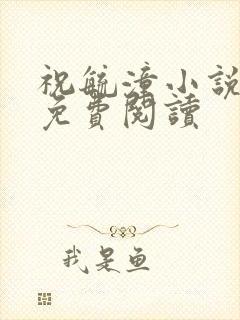 祝毓漳小說
免費閱讀
我是鱼